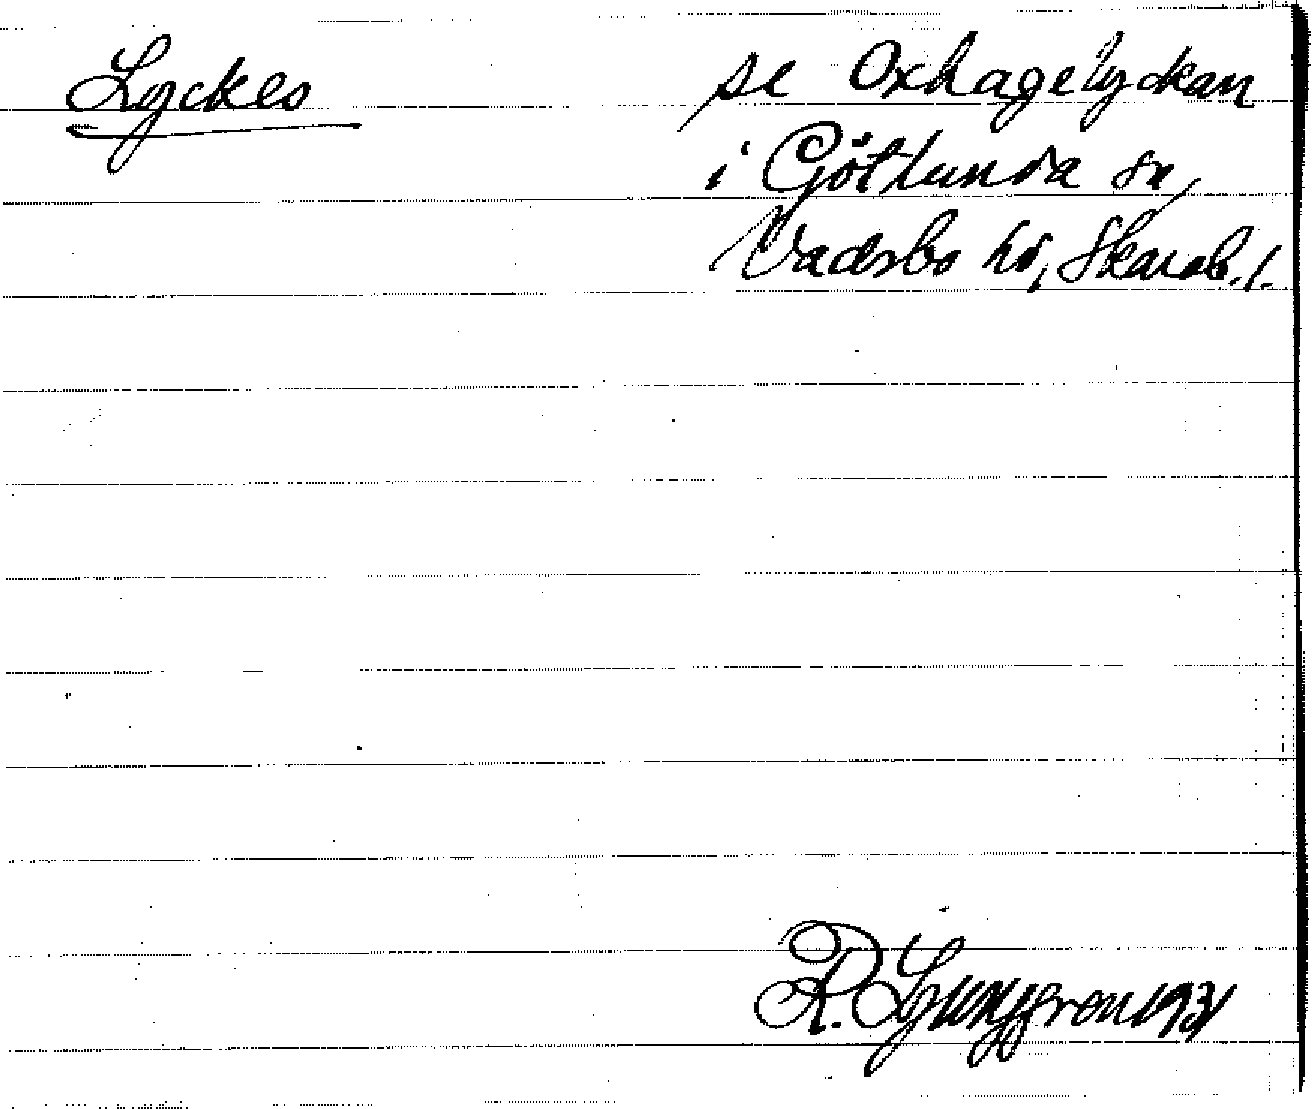 Lyckes
se Oxhagelyckan
i Götlunda sn,
Vadsbo hd, Skarab. l.
R. Ljunggren 1931